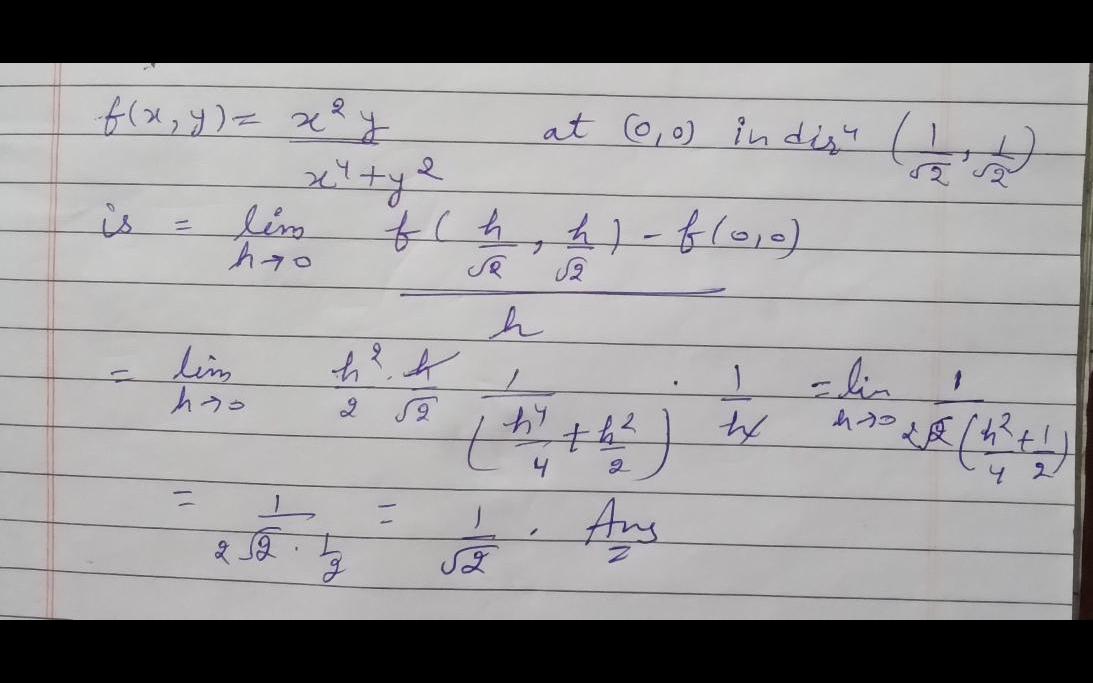 f(x, y) = x² y / x⁴ + y² at (0,0) in dirⁿ (1/√2, 1/√2)
is = lim h→0 f(h/√2, h/√2) - f(0,0) / h
= lim h→0 h²/2 · h/√2 1/(h⁴/4 + h²/2) · 1/h = lim h→0 1/2√2 (h²/4 + 1/2)
= 1/2√2 · 1/2 = 1/√2 . Ans